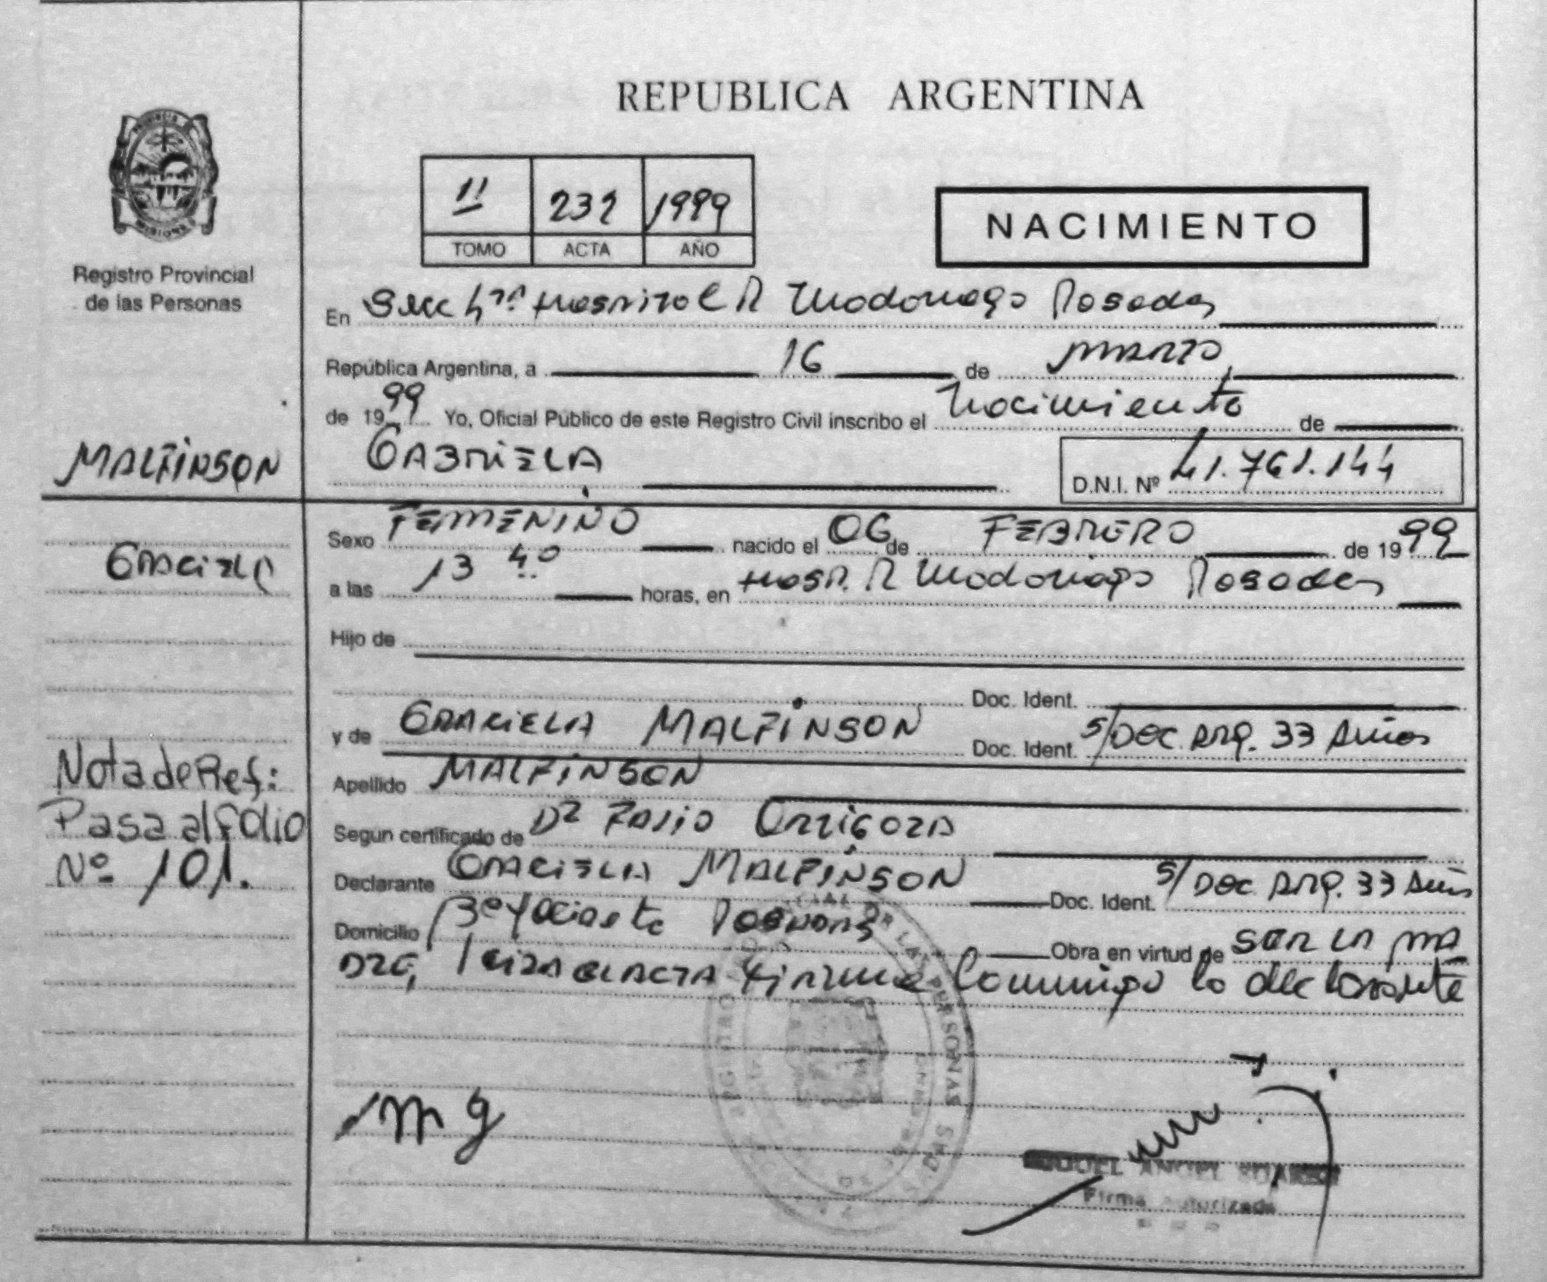 REPUBLICA ARGENTINA
Registro Provincial
de las Personas
11 232 1999
TOMO ACTA AÑO
NACIMIENTO
En Secc 4ta Hospital R Madariaga Posadas
República Argentina, a 16 de MARZO
de 1999 Yo, Oficial Público de este Registro Civil inscribo el Nacimiento de
MALFINSON GABRIELA
D.N.I. Nº 41.761.144
GRACIELA
Sexo FEMENINO nacido el 06 de FEBRERO de 1999
a las 13 40 horas, en Hosp. R Madariaga Posadas
Hijo de
Doc. Ident.
y de GRACIELA MALFINSON Doc. Ident. S/DOC. ARG. 33 Años
Apellido MALFINSON
Nota de Ref:
Pasa al folio
Nº 101.
Según certificado de Dr
Declarante GRACIELA MALFINSON Doc. Ident. S/DOC. ARG. 33 Años
Domicilio Posadas Obra en virtud de SER LA MA
DRE, Leida el ACTA Firma Conmigo la declarante
MIGUEL ANGEL
Firma Autorizada